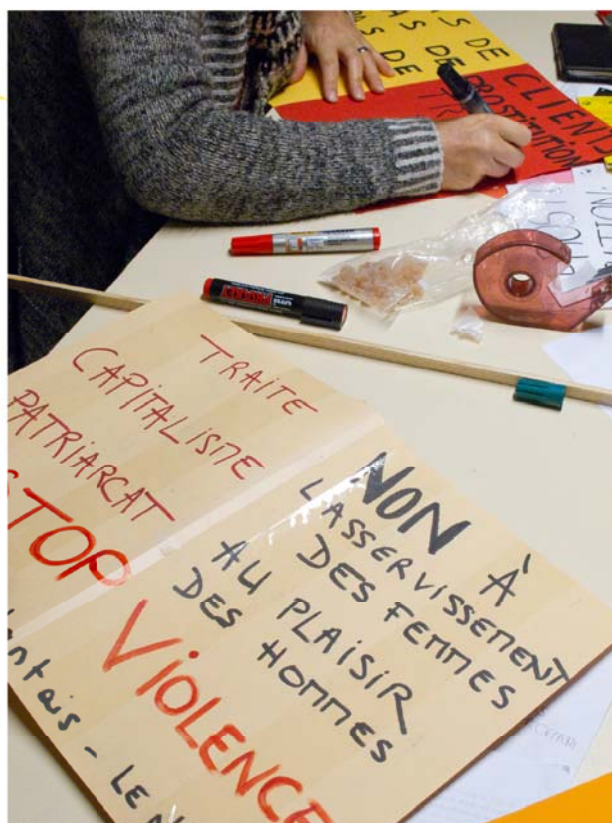 AS DE
AS DE CLIENTS
AS DE PROSTITUTION
TR
PROCKEY
TRAITE
CAPITALISME
PATRIARCAT
STOP
VIOLENCE
NON À
L'ASSERVISSEMENT
DES FEMMES
AU PLAISIR
DES HOMMES
ntais - LE N